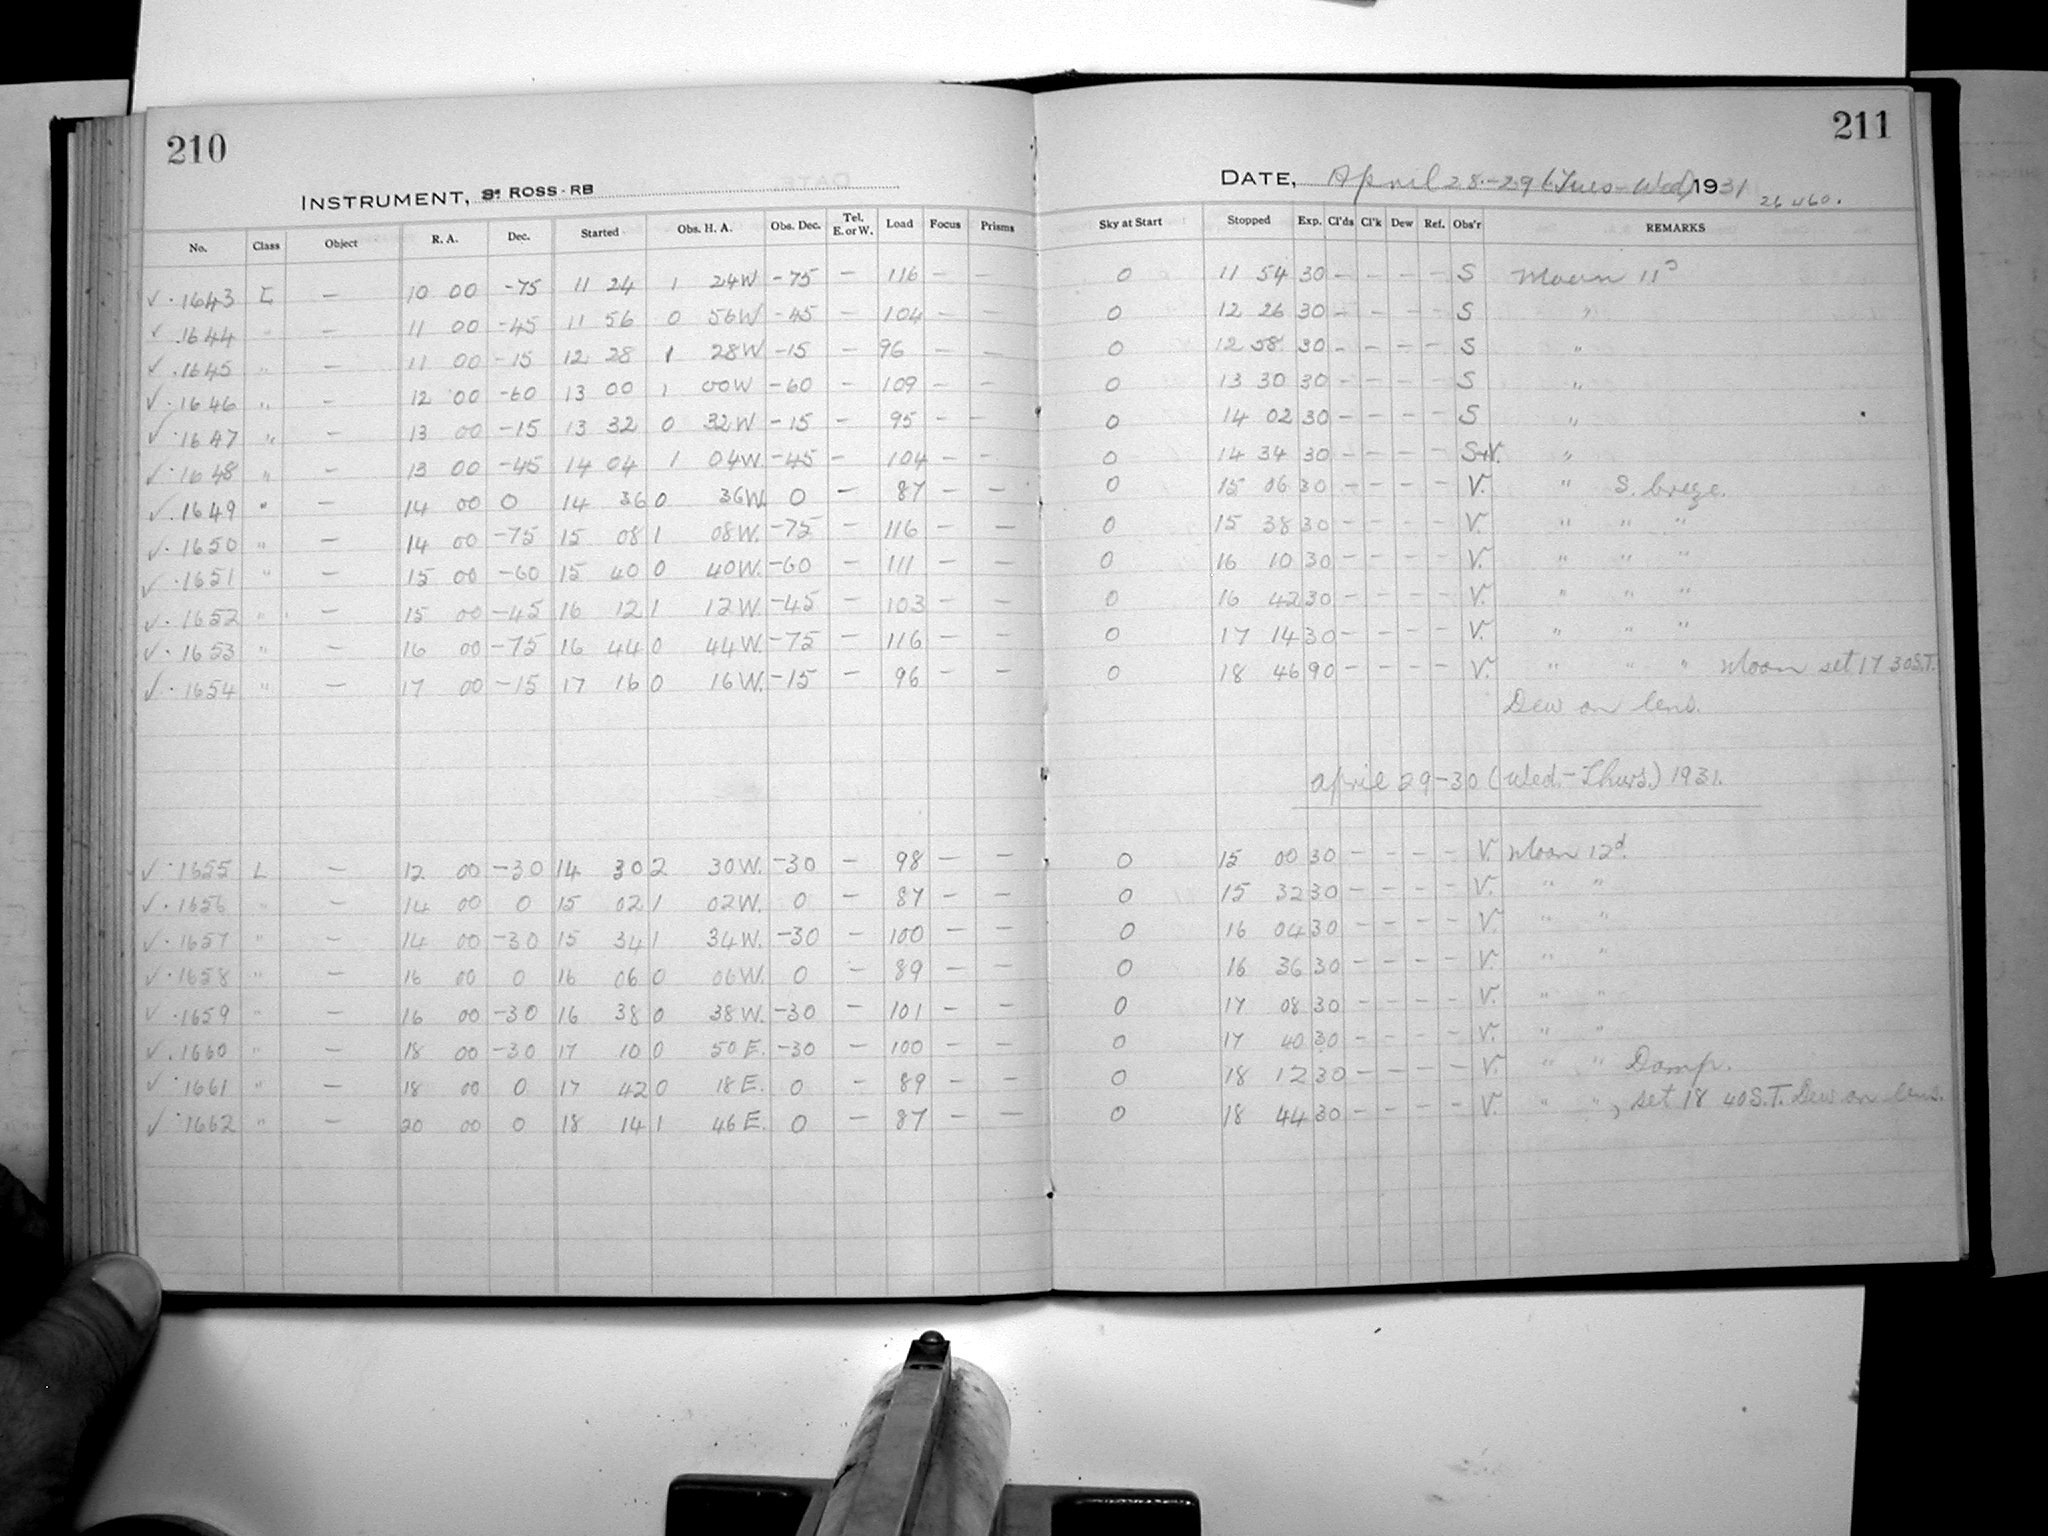 210
INSTRUMENT, 3" ROSS-RB
No. Class Object R. A. Dec. Started Obs. H. A. Obs. Dec. Tel. E. or W. Load Focus Prisms
✓ · 1643 L — 10 00 -75 11 24 1 24W -75 — 116 — —
✓ · 1644 " — 11 00 -45 11 56 0 56W -45 — 104 — —
✓ · 1645 " — 11 00 -15 12 28 1 28W -15 — 96 — —
✓ · 1646 " — 12 00 -60 13 00 1 00W -60 — 109 — —
✓ · 1647 " — 13 00 -15 13 32 0 32W -15 — 95 — —
✓ · 1648 " — 13 00 -45 14 04 1 04W. -45 — 104 — —
✓ · 1649 " — 14 00 0 14 36 0 36W. 0 — 87 — —
✓ · 1650 " — 14 00 -75 15 08 1 08W. -75 — 116 — —
✓ · 1651 " — 15 00 -60 15 40 0 40W. -60 — 111 — —
✓ · 1652 " — 15 00 -45 16 12 1 12W. -45 — 103 — —
✓ · 1653 " — 16 00 -75 16 44 0 44W. -75 — 116 — —
✓ · 1654 " — 17 00 -15 17 16 0 16W. -15 — 96 — —
✓ · 1655 L — 12 00 -30 14 30 2 30W. -30 — 98 — —
✓ · 1656 " — 14 00 0 15 02 1 02W. 0 — 87 — —
✓ · 1657 " — 14 00 -30 15 34 1 34W. -30 — 100 — —
✓ · 1658 " — 16 00 0 16 06 0 06W. 0 — 89 — —
✓ · 1659 " — 16 00 -30 16 38 0 38W. -30 — 101 — —
✓ · 1660 " — 18 00 -30 17 10 0 50E. -30 — 100 — —
✓ · 1661 " — 18 00 0 17 42 0 18E. 0 — 89 — —
✓ · 1662 " — 20 00 0 18 14 1 46E. 0 — 87 — —
211
DATE, April 28-29 (Tues-Wed) 1931
26460.
Sky at Start Stopped Exp. Cl'ds Cl'k Dew Ref. Obs'r REMARKS
0 11 54 30 — — — — S Moon 11d
0 12 26 30 — — — — S "
0 12 58 30 — — — — S "
0 13 30 30 — — — — S "
0 14 02 30 — — — — S "
0 14 34 30 — — — — S+V. "
0 15 06 30 — — — — V. " S. breeze.
0 15 38 30 — — — — V. " " "
0 16 10 30 — — — — V. " " "
0 16 42 30 — — — — V. " " "
0 17 14 30 — — — — V. " " "
0 18 46 90 — — — — V. " " " Moon set 17 30 S.T.
Dew on lens.
April 29-30 (Wed.-Thurs.) 1931.
0 15 00 30 — — — — V. Moon 12d.
0 15 32 30 — — — — V. " "
0 16 04 30 — — — — V. " "
0 16 36 30 — — — — V. " "
0 17 08 30 — — — — V. " "
0 17 40 30 — — — — V. " "
0 18 12 30 — — — — V. " " Damp.
0 18 44 30 — — — — V. " ", set 18 40 S.T. Dew on lens.